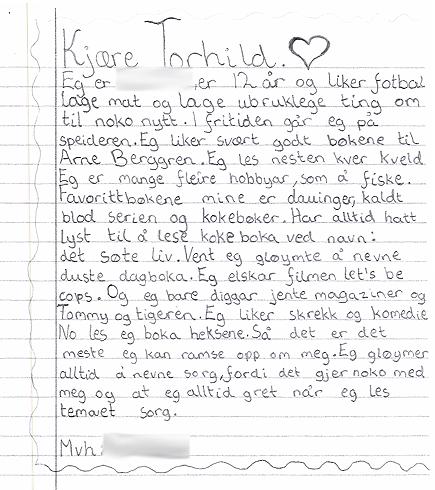 Kjære Torhild.
Eg er ,er 12 år og liker fotbal
lage mat og lage ubruklege ting om
til noko nytt. I fritiden går eg på
speideren. Eg liker svært godt bøkene til
Arne Berggren. Eg les nesten kver kveld
Eg er mange fleire hobbyar, som å fiske.
Favorittbøkene mine er dauinger, kaldt
blod serien og kokebøker. Har alltid hatt
lyst til å lese koke boka ved navn:
det søte liv. Vent eg gløymte å nevne
duste dagboka. Eg elskar filmen let's be
cops. Og eg bare diggar jente magaziner og
Tommy og tigeren. Eg liker skrekk og komedie
No les eg boka heksene. Så det er det
meste eg kan ramse opp om meg. Eg gløymer
alltid å nevne sorg, fordi det gjer noko med
meg og at eg alltid gret når eg les
temaet sorg.
Mvh: